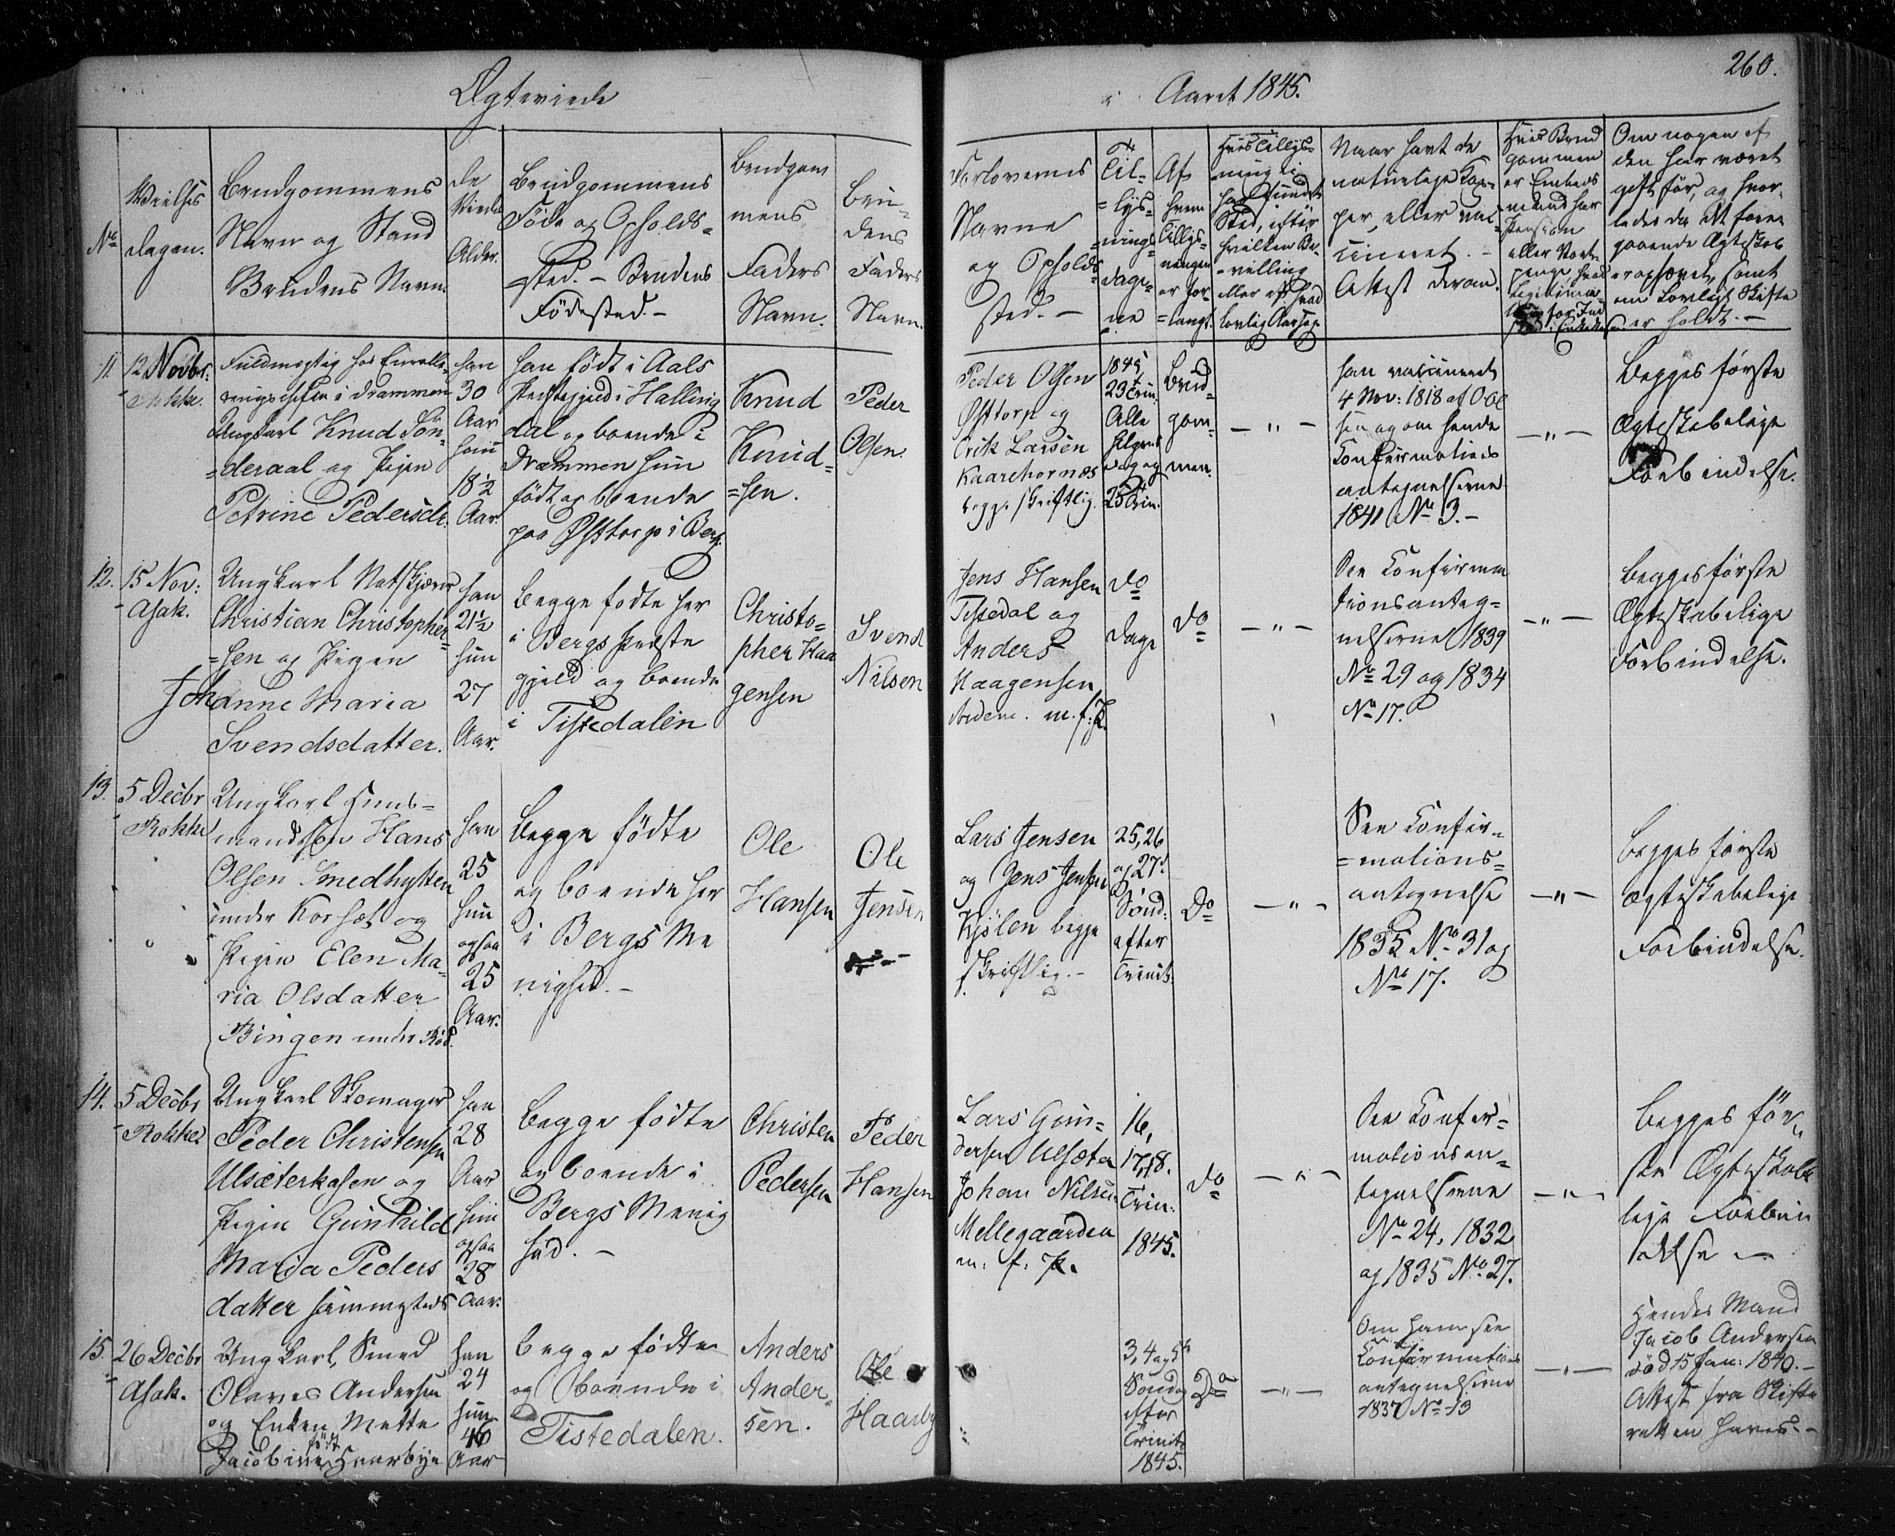 Ægteviede
i Aaret 1845.
260.
No
Vielses
dagen.
Brudgommens
Navn og Stand
Brudens Navn.
De
Viedes
Alder.
Brudgommens
Føde og Opholds-
sted. - Brudens
Fødested. -
Brudgom
mens
Faders
Navn.
Bru-
dens
Faders
Navn.
Forlovernes
Navne
og Opholds-
sted. -
Til-
lys-
nings-
dage-
ne
Af
hvem
Tillys-
ningen
er for-
langt.
Naar havt de
naturlige Kop-
per, eller vac-
cineret. -
Attest derom.
Hvis Brud
gommen
er Embeds
mand har
Pension
Om nogen af
den har været
gift før, og hvor-
ledes da det fore
gaaende Ægteskab
er ophævet, samt
om Lovligt Skifte
er holdt. -
11.
12 Novbr:
Rokke.
Fuldmægtig hos Enrolle-
ringschefen i Drammen
Ungkarl Knud Søn-
deraal og Pigen
Petrine Pedersdr.
han
30
Aar
hun
18 1/2
Aar.
han født i Aals
Præstegjeld i Halling
dal og boende i
Drammen hun
født og boende
paa Østtorp i Berg.
Knud
Knud-
sen.
Peder
Olsen.
Peder Olsen
Østtorp og
Erik Larsen
Kaarehornæs
begge skriftlig.
1845
23 Trin.
Alle
Helgens
dag og
25 Trin.
Brud-
gom-
men.
- " -
han vaccineret
4 Nov: 1818 af O. Ol
sen og om hende
Confirmations
antegnelserne
1841 No 3. -
- " -
Begges første
Ægteskabelige
Forbindelse.
12.
15 Nov:
Asak.
Ungkarl Notskjærer
Christian Christopher-
sen og Pigen
Johanne Maria
Svendsdatter.
han
21 1/2
hun
27
Aar.
Begge fødte her
i Bergs Præste
gjeld og boende
i Tistedalen
Christo-
pher Haa
gensen
Svend
Nilsen
Jens Hansen
Tistedal og
Anders
Haagensen
ibidem. m. f. P.
do
Dage
do
- " -
See Confirma
tionsanteg-
nelserne 1839
No 29 og 1834
No 17.
- " -
Begges første
Ægteskabelige
Forbindelse.
13.
5 Decbr
Rokke
Ungkarl Huus-
mandssøn Hans
Olsen Smedhytten
under Korsæt og
Pigen Elen Ma-
ria Olsdatter
Bingen under Rød.
han
25
hun
ogsaa
25
Aar.
Begge fødte
og boende her
i Bergs Me
nighed. -
Ole
Hansen
Ole
Jensen
Lars Jensen
og Jens Jensen
Kjølen begge
skriftlig. -
25, 26
og 27d.
Sønd.
efter
Trinit.
Do
- " -
See Confir-
mations-
antegnelse
1835 No 31 og
No 17.
- " -
Begges første
Ægteskabelige
Forbindelse.
14.
5 Decbr
Rokke
Ungkarl Skomager
Peder Christensen
Ulsæterkasen og
Pigen Gunhild
Maria Peders
datter sammesteds
han
28
Aar
hun
ogsaa
28
Aar.
Begge fødte
og boende i
Bergs Menig
hed. -
Christen
Pedersen
Peder
Hansen
Lars Gun-
dersen Ulsæter
Johan Nilsen
Mellegaarden
m. f. P.
16,
17, 18.
Trin.
1845.
do
- " -
See Confir-
mationsan-
tegnelserne
No 24, 1832
og 1835 No 27.
- " -
Begges før-
ste Ægteskabe
lige Forbin
delse -
15.
26 Decbr
Asak.
Ungkarl, Smed
Olaves Andersen
og Enken Mette
Jacobine født Haarbye
han
24
hun
46
Aar
begge fødte
og boende i
Tistedalen.
Anders
Ander-
sen.
Ole
Haarby
3, 4 og 5te
Søndag
efter
Trinit.
1845.
Do
- " -
Om ham see
Confirmations
antegnelserne
1837 No 19
- " -
Hendes Mand
Jacob Andersen
død 15 Jan: 1840. -
Attest fra Skifte
retten haves. -